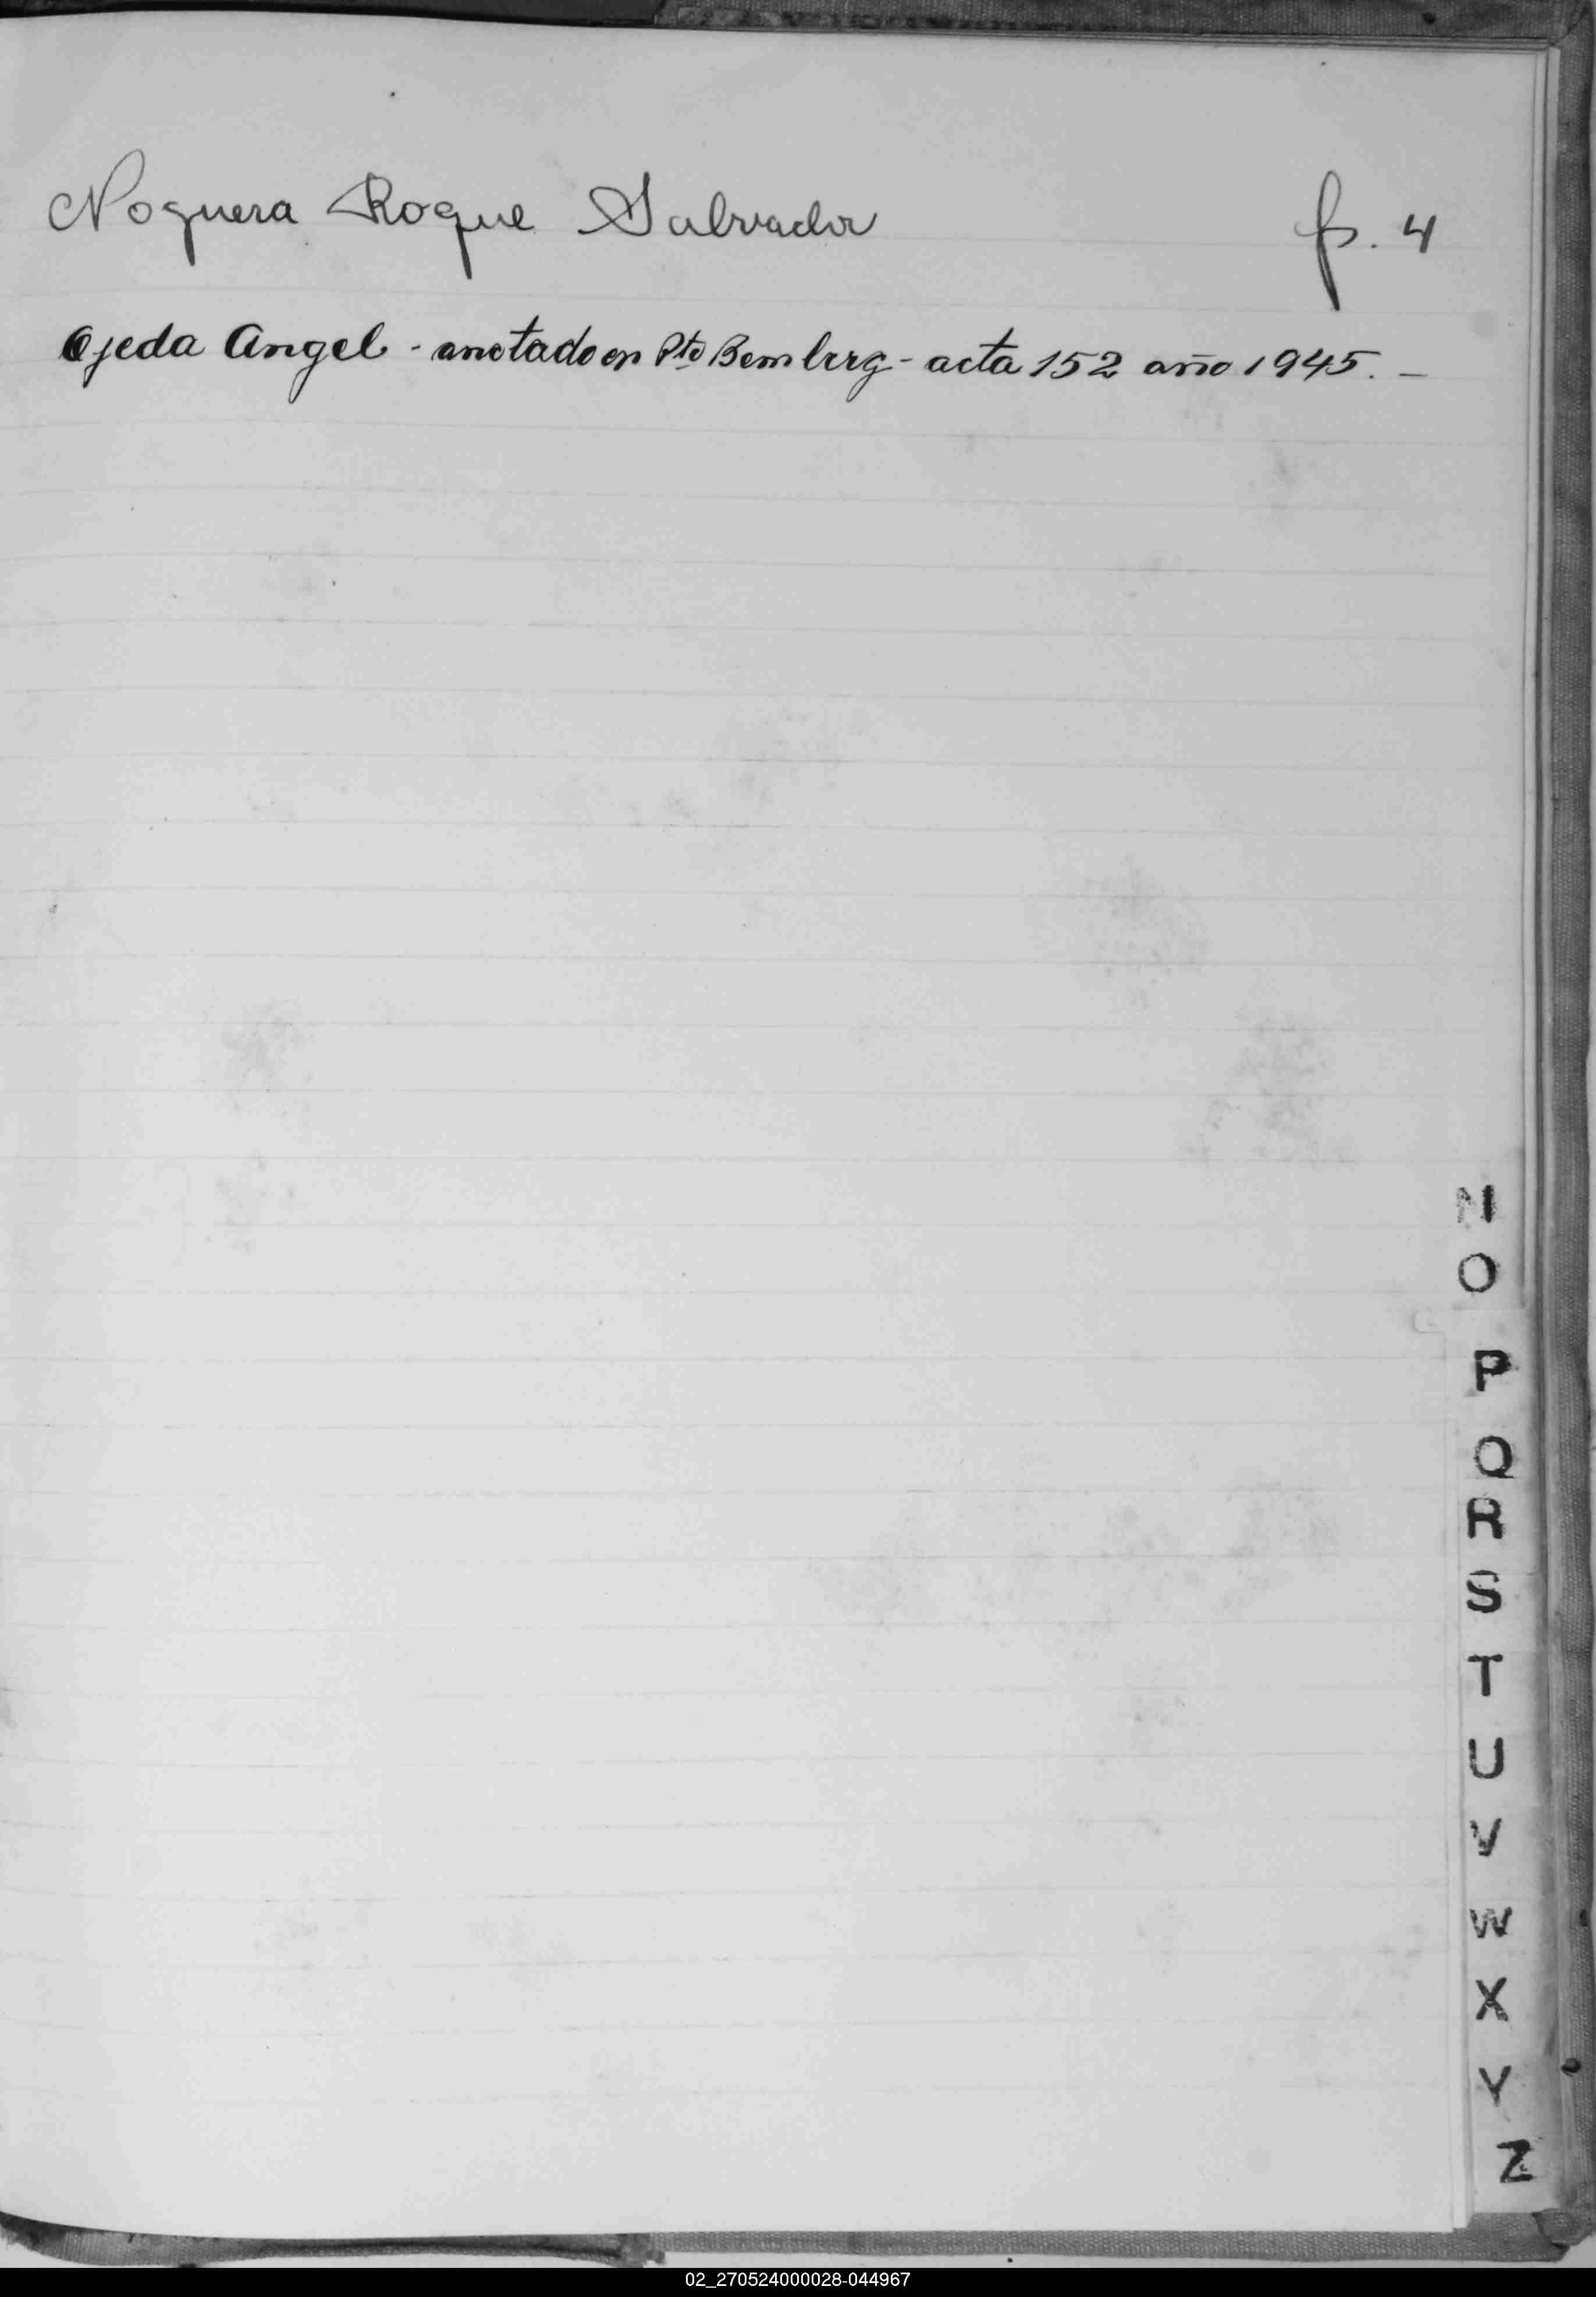 Noguera Roque Salvador fs. 4
Ojeda Angel - anotado en Pto Bemberg - acta 152 año 1945. -
N
O
P
Q
R
S
T
U
V
W
X
Y
Z
02_270524000028-044967